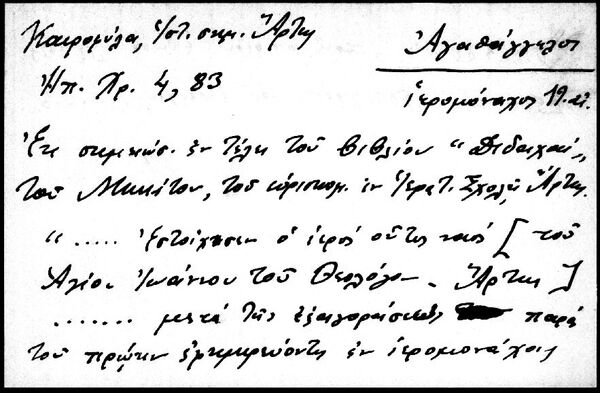 Καιρομύλα, ἱστ. σημ. Ἄρτης
Ἀγαθάγγελος
Ἠπ. Χρ. 4, 83
ἱερομόναχος 19. αἰ.
Ἐκ σημειώσ. ἐν τέλει τοῦ βιβλίου “Διδαχαί„
τοῦ Μηνιάτου, τοῦ εὑρισκομ. ἐν Ἱερατ. Σχολῇ Ἄρτης.
“ ..... ἐστοίχησεν ὁ ἱερὸς οὗτος ναὸς [τοῦ
Ἁγίου Ἰωάννου τοῦ Θεολόγου - Ἄρτης]
....... μετὰ τῆς ἐξαγοράσεως παρὰ
τοῦ πρώην ἐφημερεύοντος ἐν ἱερομονάχοις